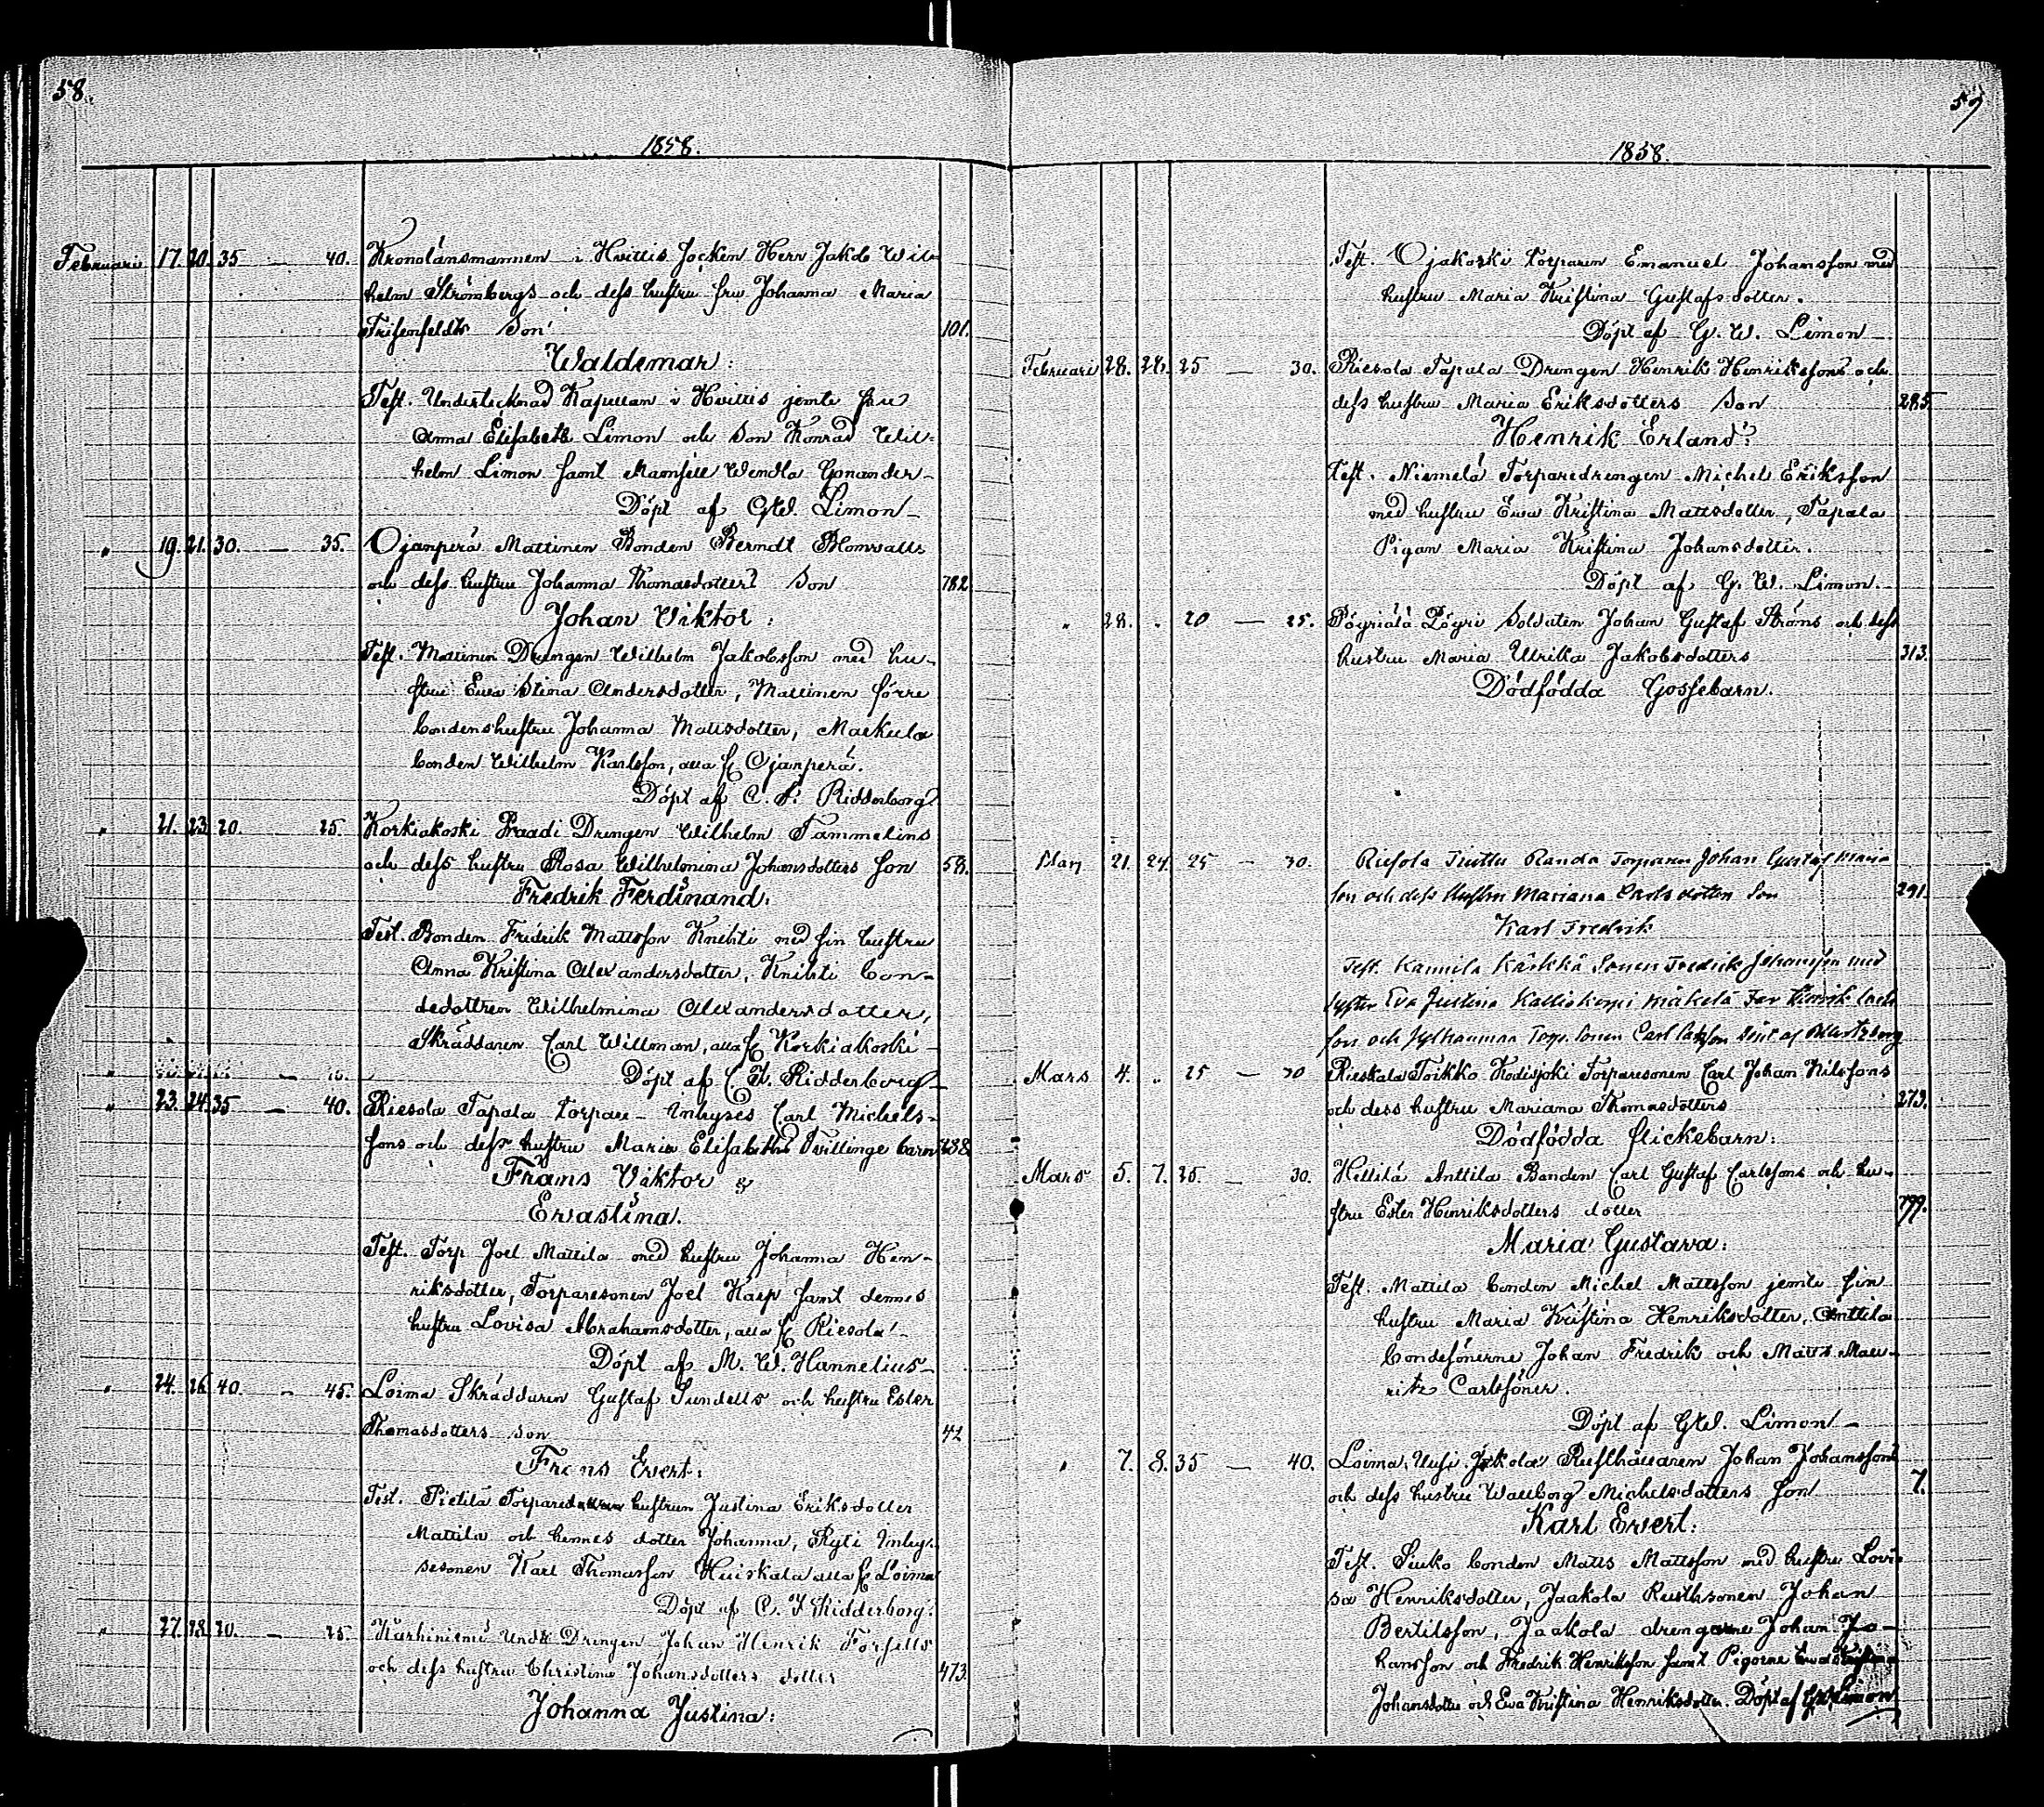 58.
1858.
Februari 17. 20. 35 — 40. Kronolänsmannen i Hvittis Socken Herr Jakob Wil-
helm Strömbergs och dess hustru fru Johanna Maria
Trisenfeldts Son 101.
Waldemar:
Test. Undertecknad Kapellan i Hvittis jemte fru
Anna Elisabeth Limon och Son Konrad Wil-
helm Limon samt Mamsell Wendla Gananders
Döpt af GW. Limon
" 19. 21. 30. — 35. Ojanperä Mattinen Bonden Berndt Blomvalls
och dess hustru Johanna Thomasdotters Son 782
Johan Viktor:
Test. Mattinen Drengen Wilhelm Jakobsson med hu-
stru Eva Stina Andersdotter, Mattinen förre
bondenshustru Johanna Mattsdotter, Markula
bonden Wilhelm Karlsson, alla fr Ojanperä.
Döpt af C. J. Ridderborg
" 21. 23. 20. — 25. Korkiakoski Praadi Drengen Wilhelm Tammelins
och dess hustru Rosa Wilhelmina Johansdotters son 58.
Fredrik Ferdinand:
Test. Bonden Fredrik Mattsson Knihti med sin hustru
Anna Kristina Alexandersdotter, Knihti bon-
dedottren Wilhelmina Alexandersdotter,
Skräddaren Carl Willman, alla fr Korkiakoski
Döpt af C. J. Ridderborg
" 23. 24. 35 — 40. Riesola Tapala torpare Inhyses Carl Michels-
sons och dess hustru Maria Elisabeths Tvillinge barn 288
Frans Viktor &
Evastina.
Test. Torp Joel Mattila med hustru Johanna Hen-
riksdotter, Torparesonen Joel Karp samt dennes
hustru Lovisa Abrahamsdotter, alla fr Riesola
Döpt af M. W. Hannelius
" 24. 26. 40. — 45. Loima Skräddaren Gustaf Sundells och hustru Ester
Thomasdotters son 42
Frans Evert:
Test. Pietilä Torpare hustrun Justina Eriksdotter
Mattila och hennes dotter Johanna, Ryti Inhy-
sesonen Karl Thomasson Huiskala alla fr Loima
Döpt af C. J Ridderborg.
" 27. 28. 20. — 25. Karhiniemi Undi Drengen Johan Henrik Forsells
och dess hustru Christina Johansdotters dotter 473
Johanna Justina:
59
1858.
Test. Ojakoski torparen Emanuel Johansson med
hustru Maria Kristina Gustafsdotter.
Döpt af G. W. Limon
Februari 28. 28. 25 — 30. Riesola Tapala Drengen Henrik Henrikssons och
dess hustru Maria Eriksdotters Son 285
Henrik Erland:
Test. Niemelä Torparedrengen Michel Eriksson
med hustru Eva Kristina Mattsdotter, Tapala
Pigan Maria Kristina Johansdotter.
Döpt af G. W. Limon.
" 28. " 20 — 25. Pöyriälä Pöyri Soldaten Johan Gustaf Ströms och dess
hustru Maria Ulrika Jakobsdotters 313.
Dödfödda Gossebarn.
21. 24. 25 — 30. Riesola Tiuttu Randa Torparen Johan Gustaf
son och dess Hustru Mariana Carlsdotters Son 291.
Karl Fredrik
Test. Kamila Kärkkä Sonen Fredrik Johansson med
syster Eva Justina Kalliokorpi Mäkelä
son och Jylhänmaa Torp. Sonen Carl
Mars 4. " 25 — 30 Rieskala Toikko Kodisjoki Torparesonen Carl Johan Nilssons
och dess hustru Mariana Thomasdotters 273.
Dödfödda flickebarn:
Mars 5. 7. 25. — 30. Hellilä Anttila Bonden Carl Gustaf Carlssons och hu-
stru Ester Henriksdotters dotter 799.
Maria Gustava:
Test. Mattila bonden Michel Mattsson jemte sin
hustru Maria Kristina Henriksdotter, Anttila
bondesönerne Johan Fredrik och Matts Mau-
ritz Carlsöner.
Döpt af GW. Limon
" 7. 8. 35 — 40. Loima Uusi Jaakola Rusthållaren Johan Johanssons
och dess hustru Wallborg Michelsdotters son 7.
Karl Evert:
Test. Siuko bonden Matts Mattsson med hustru Lovi-
sa Henriksdotter, Jaakola Rusthsonen Johan
Bertilsson, Jaakola drengarne Johan Jo-
hansson och Fredrik Henriksson samt Pigorne
Johansdotter och Eva Kristina Henriksdotter. Döpt af GW Limon